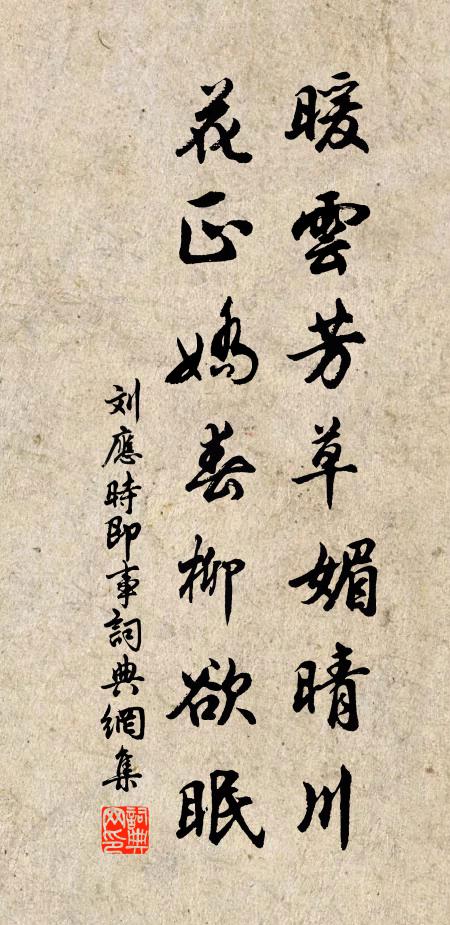 暖雲芳草媚晴川
花正嬌春柳欲眠
刘應時即事詞典網集
詞典网印